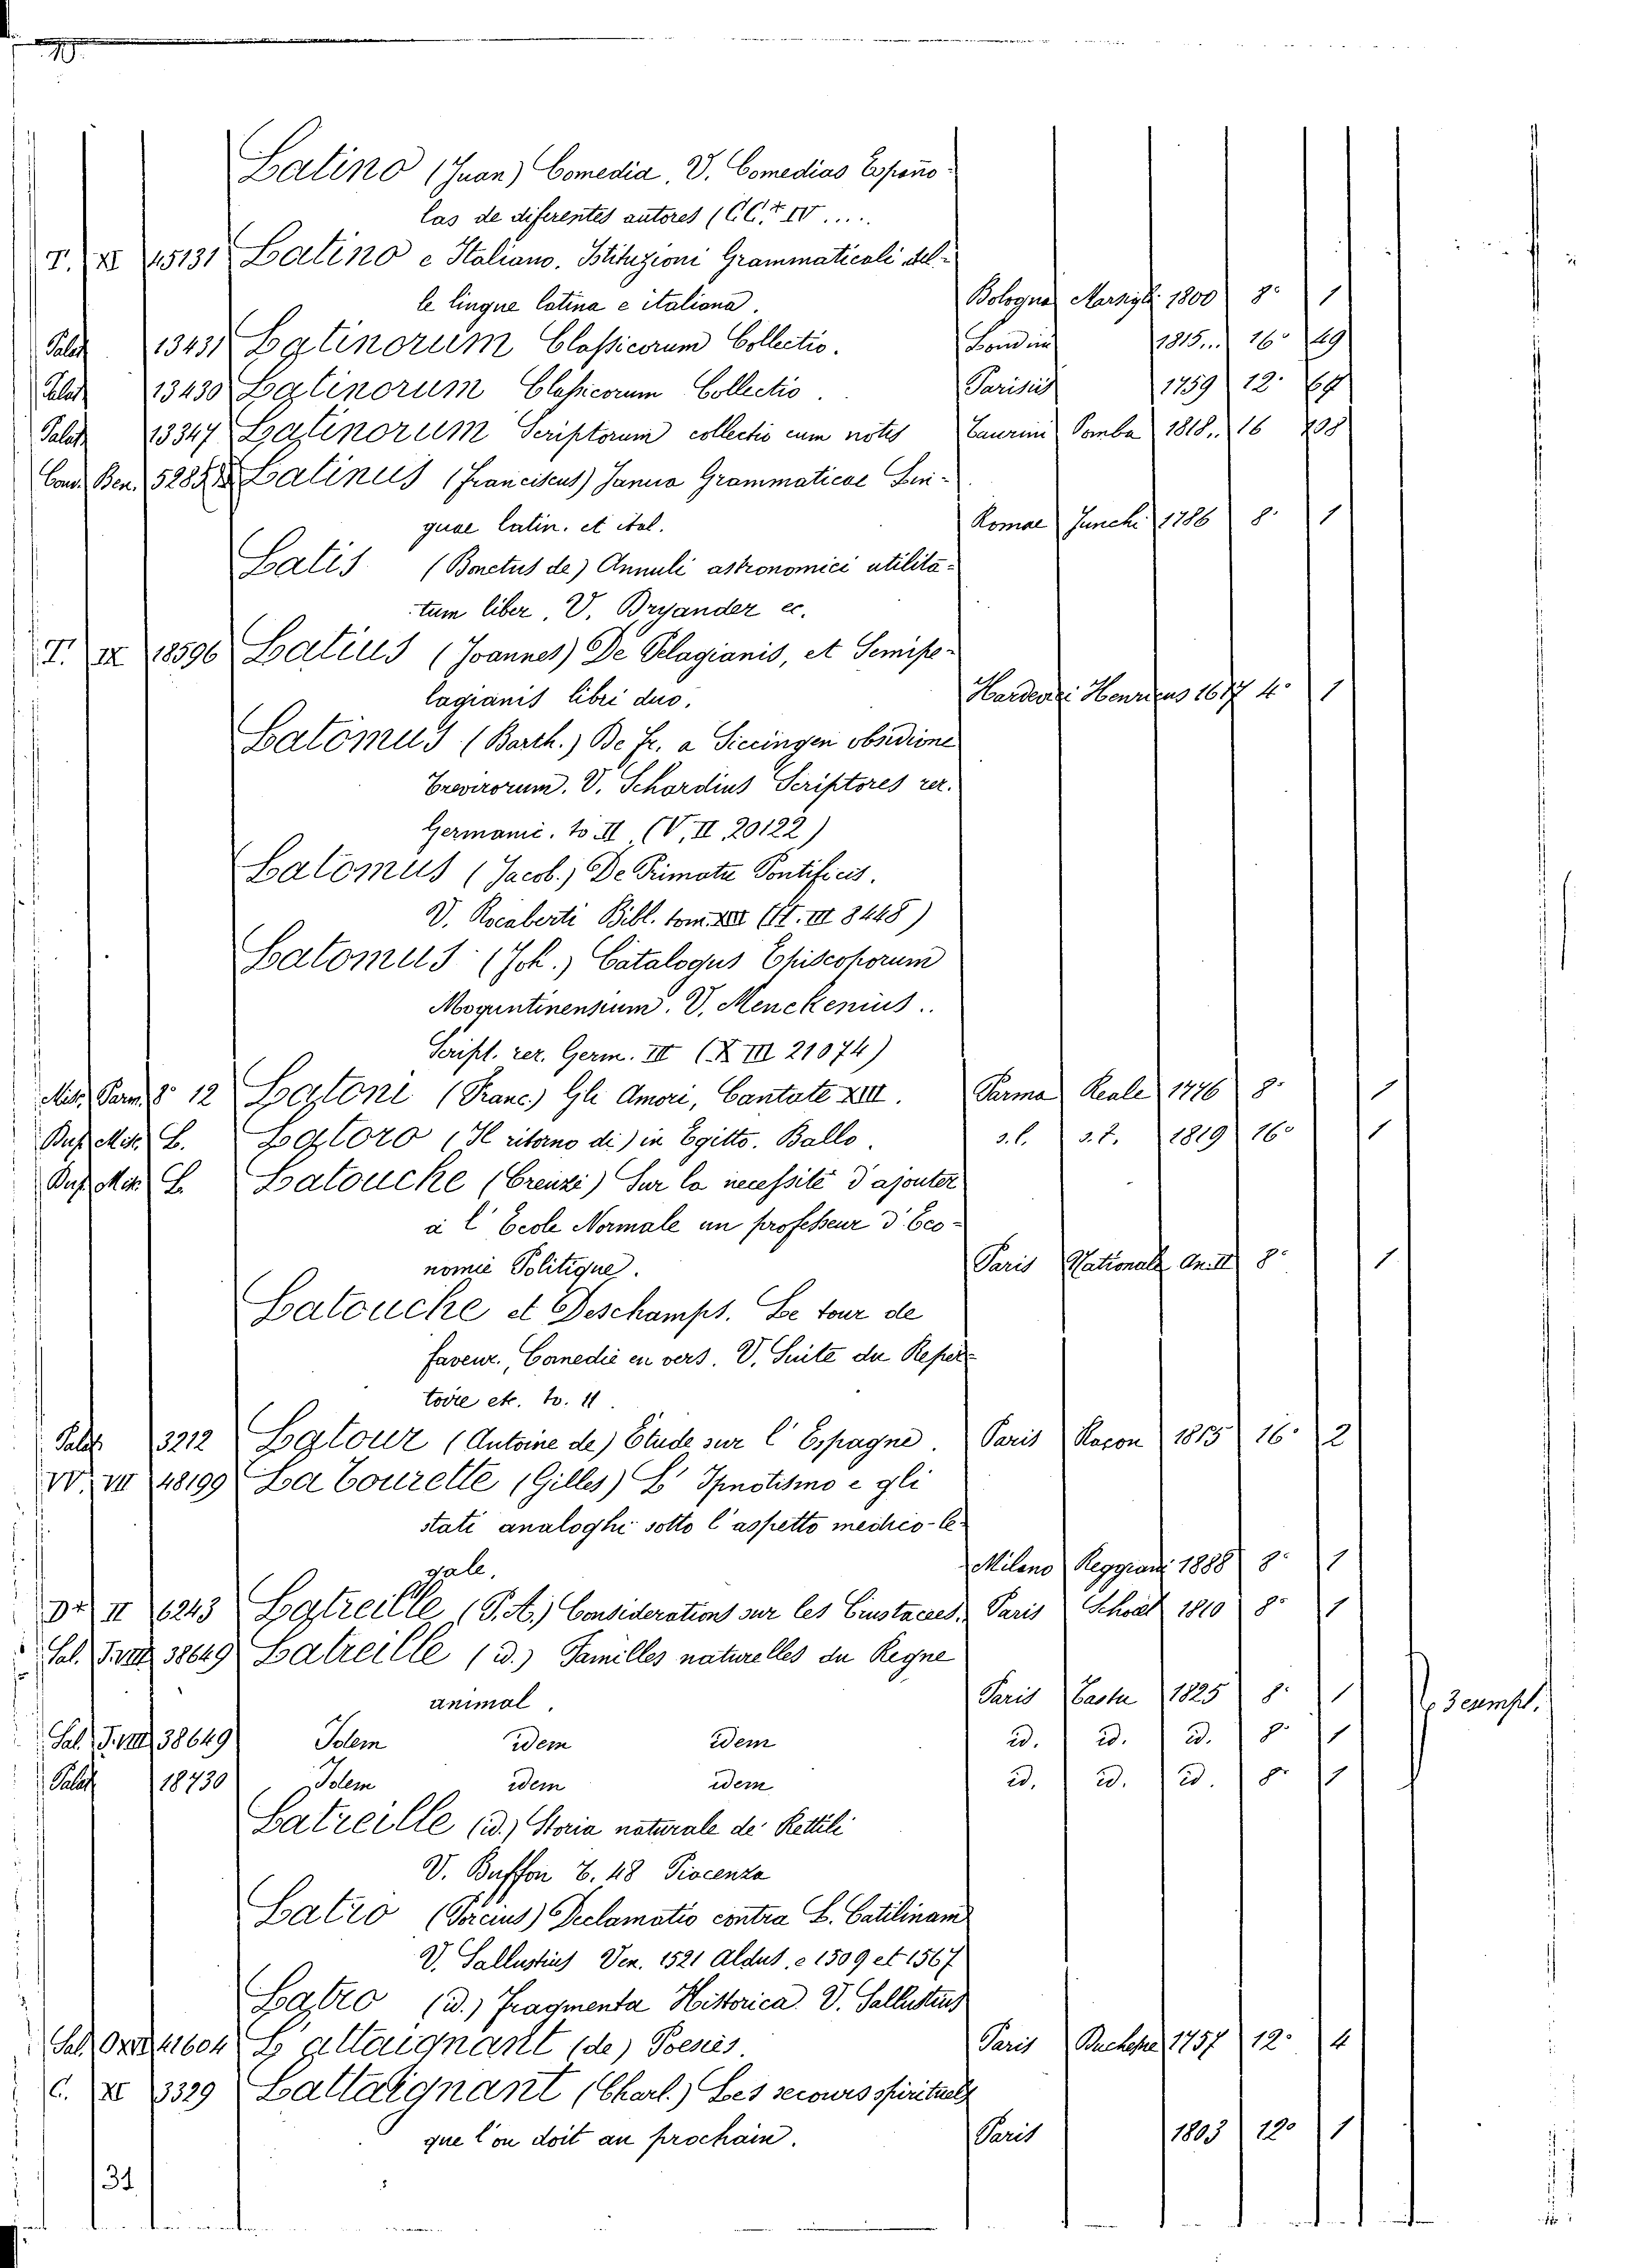 Latino (Juan) Comedia. V. Comedias Espano-
las de diferentes autores (CC.+ IV....
T. XI 45131 Latino e Italiano. Istituzioni Grammaticali del-
le lingue latina e italiana. Bologna Marsigli 1800 8º 1
Palat 13431 Latinorum Classicorum Collectio. Londini 1815... 16º 49
Palat 13430 Latinorum Classicorum Collectio. Parisiis 1759 12º 67
Palat 13347 Latinorum Scriptorum collectio cum notis Taurini Pomba 1818.. 16
Cons. Ben. Latinus (Franciscus) Janua Grammaticae Lin-
guae latin. et ital. Romae Junchi 1786 8º 1
Latis (Bonetus de) Annuli astronomici utilita-
tum liber. V. Bryander ec.
T. IX 18596 Latius (Joannes) De Pelagianis, et Semipe-
lagianis libri duo. Hardervi Henricus 1617 4º 1
Latomus (Barth.) De Fr. a Siccingen obsidione
Trevirorum. V. Schardius Scriptores rer.
Germanic. to II (V. II 20122)
Latomus (Jacob.) De Primatu Pontificis.
V. Rocaberti Bibl. tom. XIII (II. III 3448)
Latomus (Joh.) Catalogus Episcoporum
Moguntinensium. V. Menckenius..
Script. rer. Germ. III (X III 21074)
Mis. Parm. 8º 12 Latoni (Franc.) Gli Amori, Cantate XIII. Parma Reale 1776 8º 1
Buf. Mis. L. Latoro (Il ritorno di) in Egitto. Ballo. s.l. s.t. 1819 16º 1
Buf. Mis. L. Latouche (Creuzé) Sur la necessité d'ajouter
à l'Ecole Normale un professeur d'Eco-
nomie Politique. Paris Nationale An. II 8º 1
Latouche et Deschamps. Le tour de
faveur., Comedie en vers. V. Suite du Reper-
toire etc. to. 11.
Palat 3212 Latour (Antoine de) Etude sur l'Espagne. Paris Raçon 1815 16º 2
VV. VII 48199 La Tourette (Gilles) L'Ipnotismo e gli
stati analoghi sotto l'aspetto medico-le-
gale. Milano Reggiani 1888 8º 1
D+ II 6243 Latreille (P.A.) Considerations sur les Crustacees, Paris Schoell 1810 8º 1
Sal. T. VIII 38649 Latreille (id.) Familles naturelles du Regne
animal. Paris Castu 1825 8º 1 3 exempl.
Sal. T. VIII 38649 Idem idem idem id. id. id. 8º 1
Palat 18730 Idem idem idem id. id. id. 8º 1
Latreille (id.) Storia naturale de' Rettili
V. Buffon T. 48 Piacenza
Latro (Porcius) Declamatio contra L. Catilinam
V. Sallustius Ven. 1521 Aldus. e 1509 et 1567
Latro (id.) Fragmenta Historica V. Sallustius
Sal. 41604 L'attaignant (de) Poesies. Paris Duchesne 1757 12º 4
C. XI 3329 Lattaignant (Charl.) Les secours spirituels
que l'on doit au prochain. Paris 1803 12º 1
31